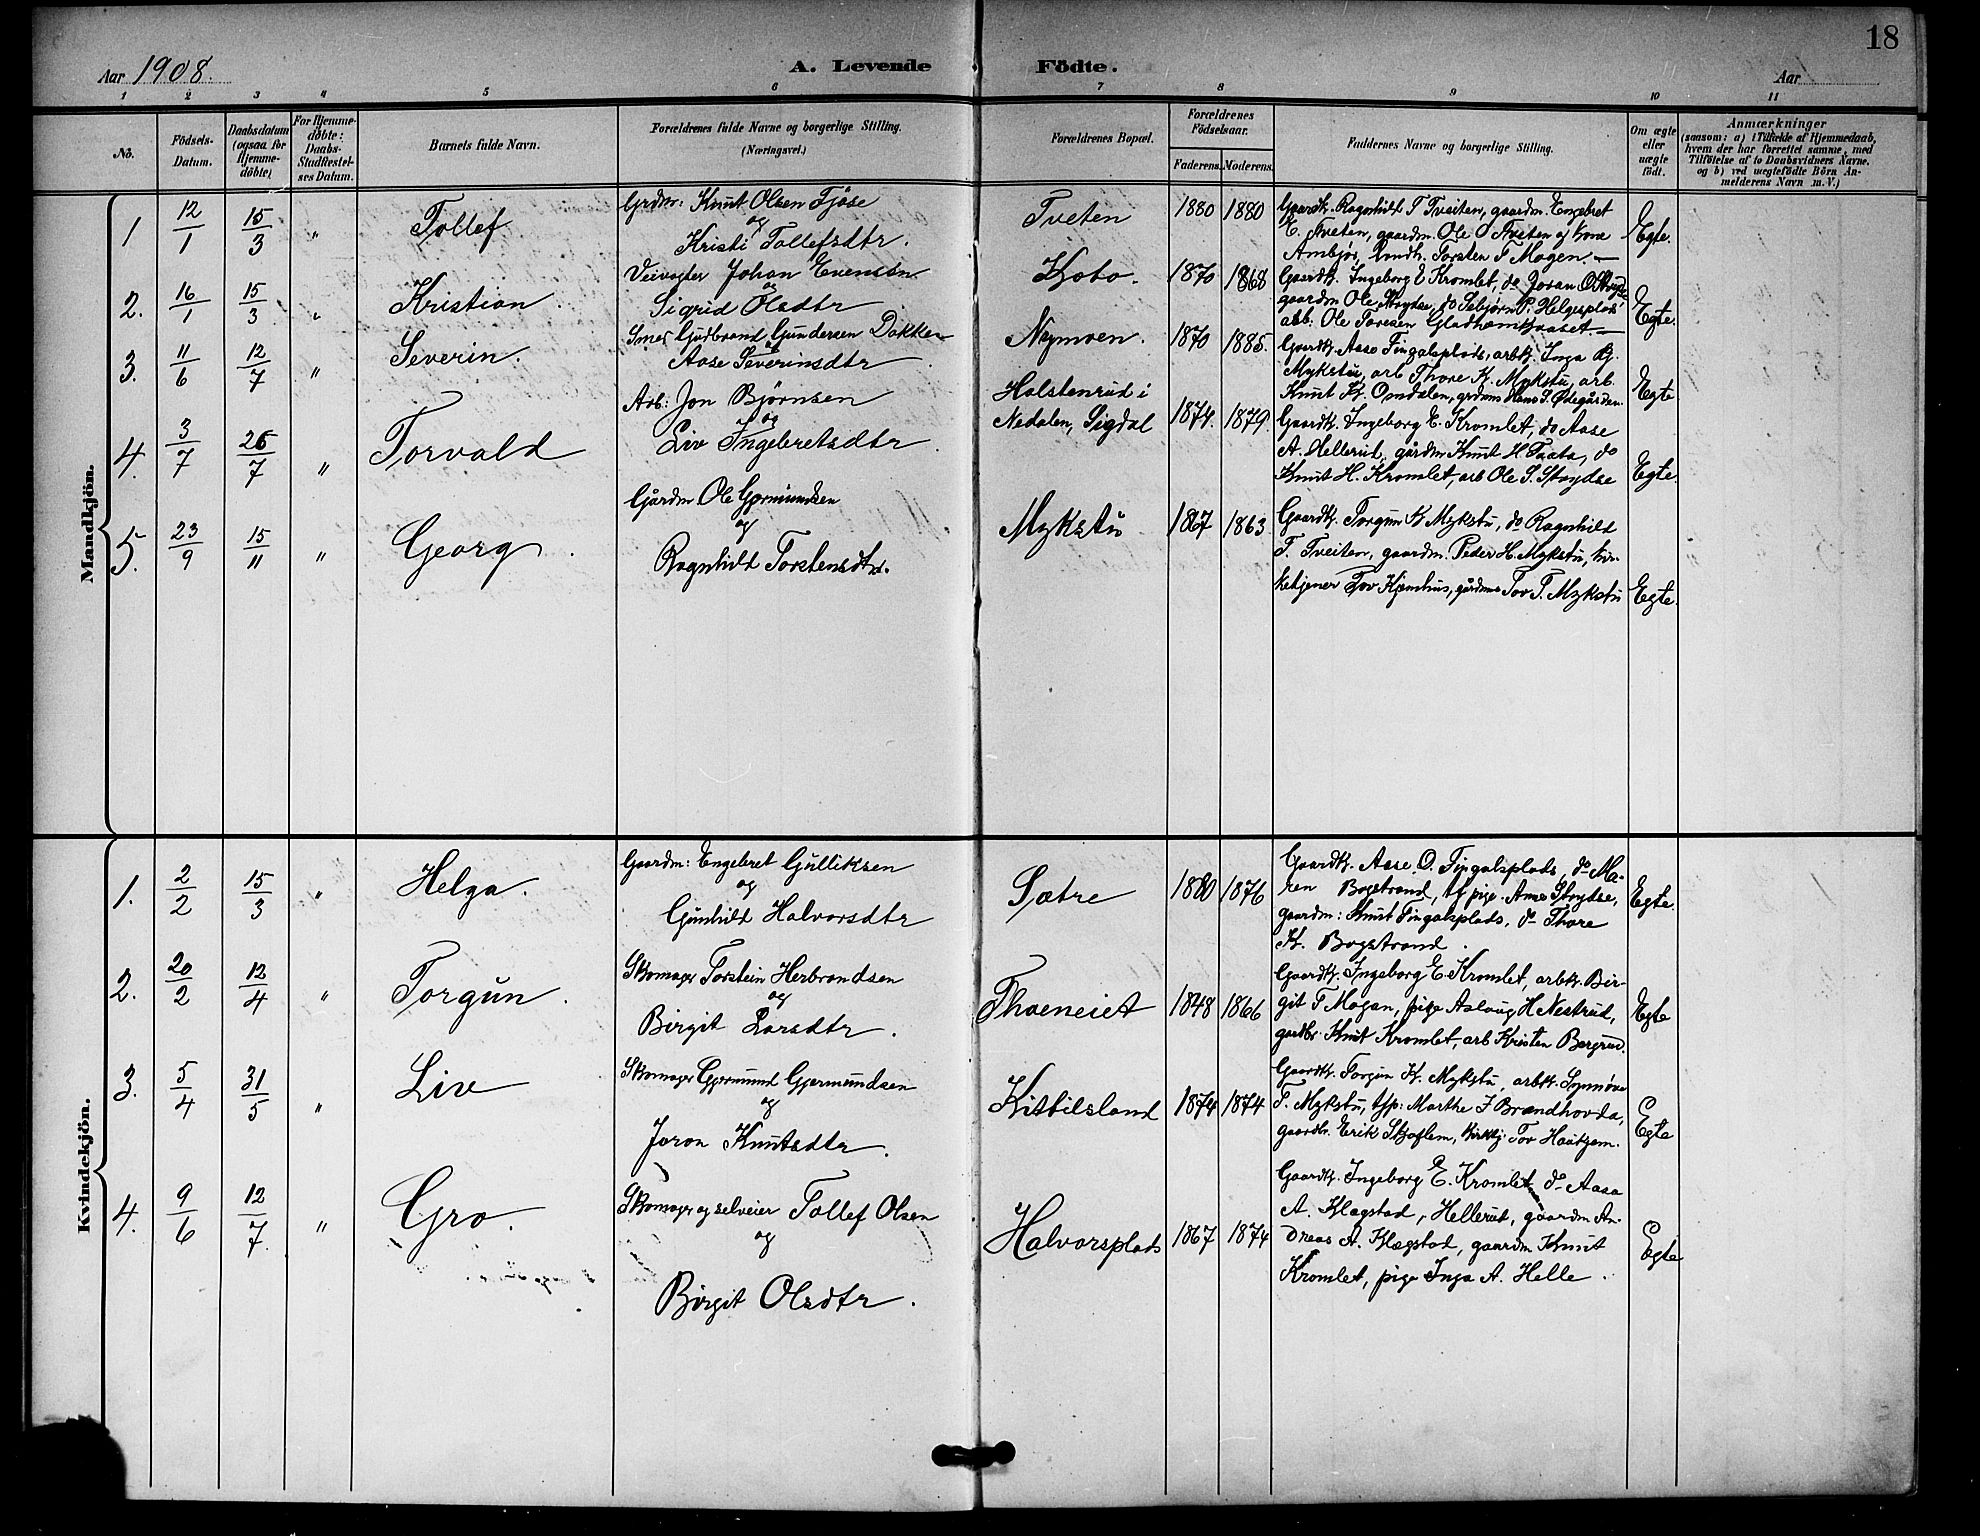 18
Aar 1908.
A. Levende Födte.
Aar
1 2 3 4 5 6 7 8 9 10 11
No.
Födsels-Datum.
Daabsdatum (ogsaa for Hjemme-döbte)
For Hjemme-döbte: Daabs-Stadfestel-ses Datum.
Barnets fulde Navn.
Forældrenes fulde Navne og borgerlige Stilling.
(Næringsvei.)
Forældrenes Bopæl.
Forældrenes Födselsaar.
Faderens. Moderens.
Faddernes Navne og borgerlige Stilling.
Om ægte eller uægte födt.
Anmærkninger
(saasom: a) i Tilfælde af Hjemmedaab,
hvem der har forrettet samme, med
Tilföielse af to Daabsvidners Navne.
og b) ved uægtefödte Börn An-
melderens Navn m. V.)
Mandkjön.
1 12/1 15/3 " Tollef
Grdm: Knut Olsen Fjöse
og
Kristi Tollefsdtr.
Tveten 1880 1880
Gaardk. Ragnhild T Tveiten, gaardm. Engebret
E. Tveten, gaardm. Ole O Tveten og kone
Ambjör, Torsten T Mogen.
Egte.
2. 16/1 15/3 " Kristian
Veivogter Johan Evensen
og
Sigrid Olsdtr
Kobo. 1870 1868
Gaardk. Ingeborg E Kromlet, do Joran O
gaardm Ole Strydse, do P. Helgesplads
Ole Toresen
Egte.
3. 11/6 12/7 " Severin.
Smed Gudbrand Gundersen Dokken
og
Aase Severinsdtr
Nymoen. 1870 1885.
Gaardk. Aase Fingalsplads, arbk. Inga G.
Mykstu, arb Thore K. Mykstu, arb.
Knut K. Opndalen, grdm Hans S. Ødegården.
Egte
4. 3/7 26/7 " Torvald
Arb: Jon Bjørnsen
og
Liv Ingebretsdtr
Holstenrud i
Nedalen, Sigdal 1874. 1879.
Gaardk. Ingeborg E. Kromlet, do Aase
A. Hellerud, gårdm Knut H. Taata, do
Knut H. Kromlet, arb Ole S. Strydse
Egte.
5. 23/9 15/11 " Georg.
Gårdm Ole Gjermundsen
og
Ragnhild Torstensdtr.
Mykstu 1867 1863
Gaardk. Torgun K Mykstu, do Ragnhild
T. Tveiten, gaardm. Peder H. Mykstu, kir-
ketjener Tov Kjemhus, gårdm Tov T. Mykstu
Egte.
Kvindekjön.
1. 2/2 15/3 " Helga.
Gaardm: Engebret Gulliksen
og
Gunhild Halvorsdtr
Sætre 1880 1876
Gaardk. Aase O. Fingalsplads, do Ma-
ren Bogstrand, tj pige. Anne Strydse,
gaardm: Knut Fingalsplads, do Thore
K. Bogstrand.
Egte.
2. 20/2 12/4 " Torgun.
Skomager Torstein Herbrandsen
og
Birgit Larsdtr.
Thoeneiet 1848 1866
Gaardk. Ingeborg E. Kromlet, arbk. Bir-
git T Mogan, pige Aslaug H Nestrud,
gaardbr. Knut Kromlet, arb Kristen Bergrud.
Egte
3. 5/4 31/5 " Liv
Skomager Gjermund Gjermundsen
og
Joron Knutsdtr.
Kittilsland 1874 1874
Gaardk. Torgun K. Mykstu, arbk. Synnøve
T. Mykstu, tjp: Marthe J Brændhovda,
gaardbr. Erik Skjaflem, kirketj: Tov Haakjem.
Egte
4. 9/6 12/7. " Gro.
Skomager og selveier Tollef Olsen
og
Birgit Olsdtr.
Halvorsplads 1867 1874
Gaardk. Ingeborg E. Kromlet, do Aasa
A. Klægstad, Hellerud, gaardm An-
dreas A. Klægstad, gaardm Knut
Kromlet, pige Inga A. Helle.
Egte